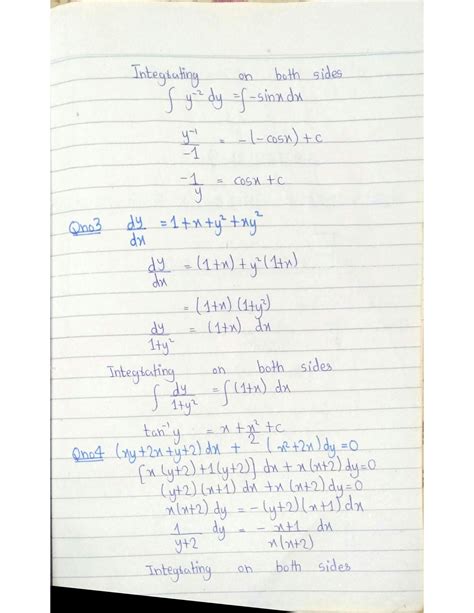 Integrating on both sides
∫ y⁻² dy = ∫ -sinx dx
y⁻¹/-1 = -(-cosx) + c
-1/y = cosx + c
Qno3 dy/dx = 1+x+y²+xy²
dy/dx = (1+x) + y²(1+x)
= (1+x) (1+y²)
dy/1+y² = (1+x) dx
Integrating on both sides
∫ dy/1+y² = ∫(1+x) dx
tan⁻¹y = x + x²/2 + c
Qno4 (xy+2x+y+2) dx + (x²+2x) dy = 0
[x(y+2)+1(y+2)] dx + x(x+2) dy = 0
(y+2) (x+1) dx + x(x+2) dy = 0
x(x+2) dy = -(y+2) (x+1) dx
1/y+2 dy = - x+1/x(x+2) dx
Integrating on both sides